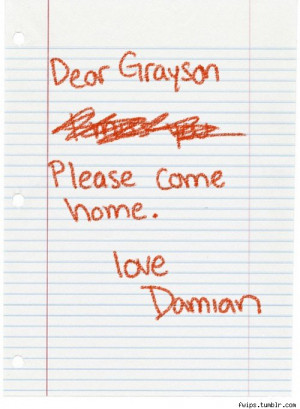 Dear Grayson
Please come
home.
love
Damian
fwips.tumblr.com